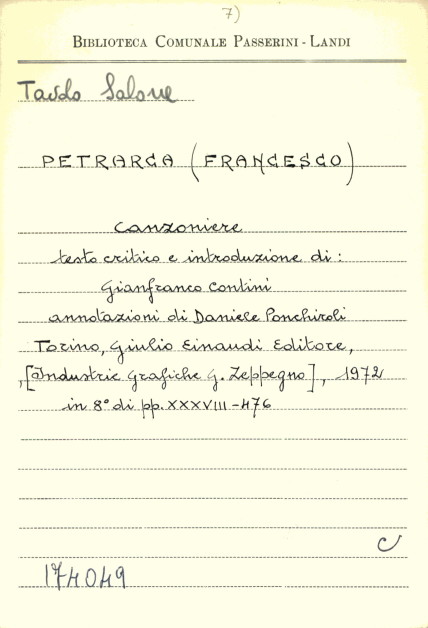 7)
BIBLIOTECA COMUNALE PASSERINI - LANDI
Tavolo Salone
PETRARCA (FRANCESCO)
Canzoniere
testo critico e introduzione di :
Gianfranco Contini
annotazioni di Daniele Ponchiroli
Torino, Giulio Einaudi Editore,
,[Industrie Grafiche G. Zeppegno], 1972
in 8° di pp. XXXVIII-476
C
174049